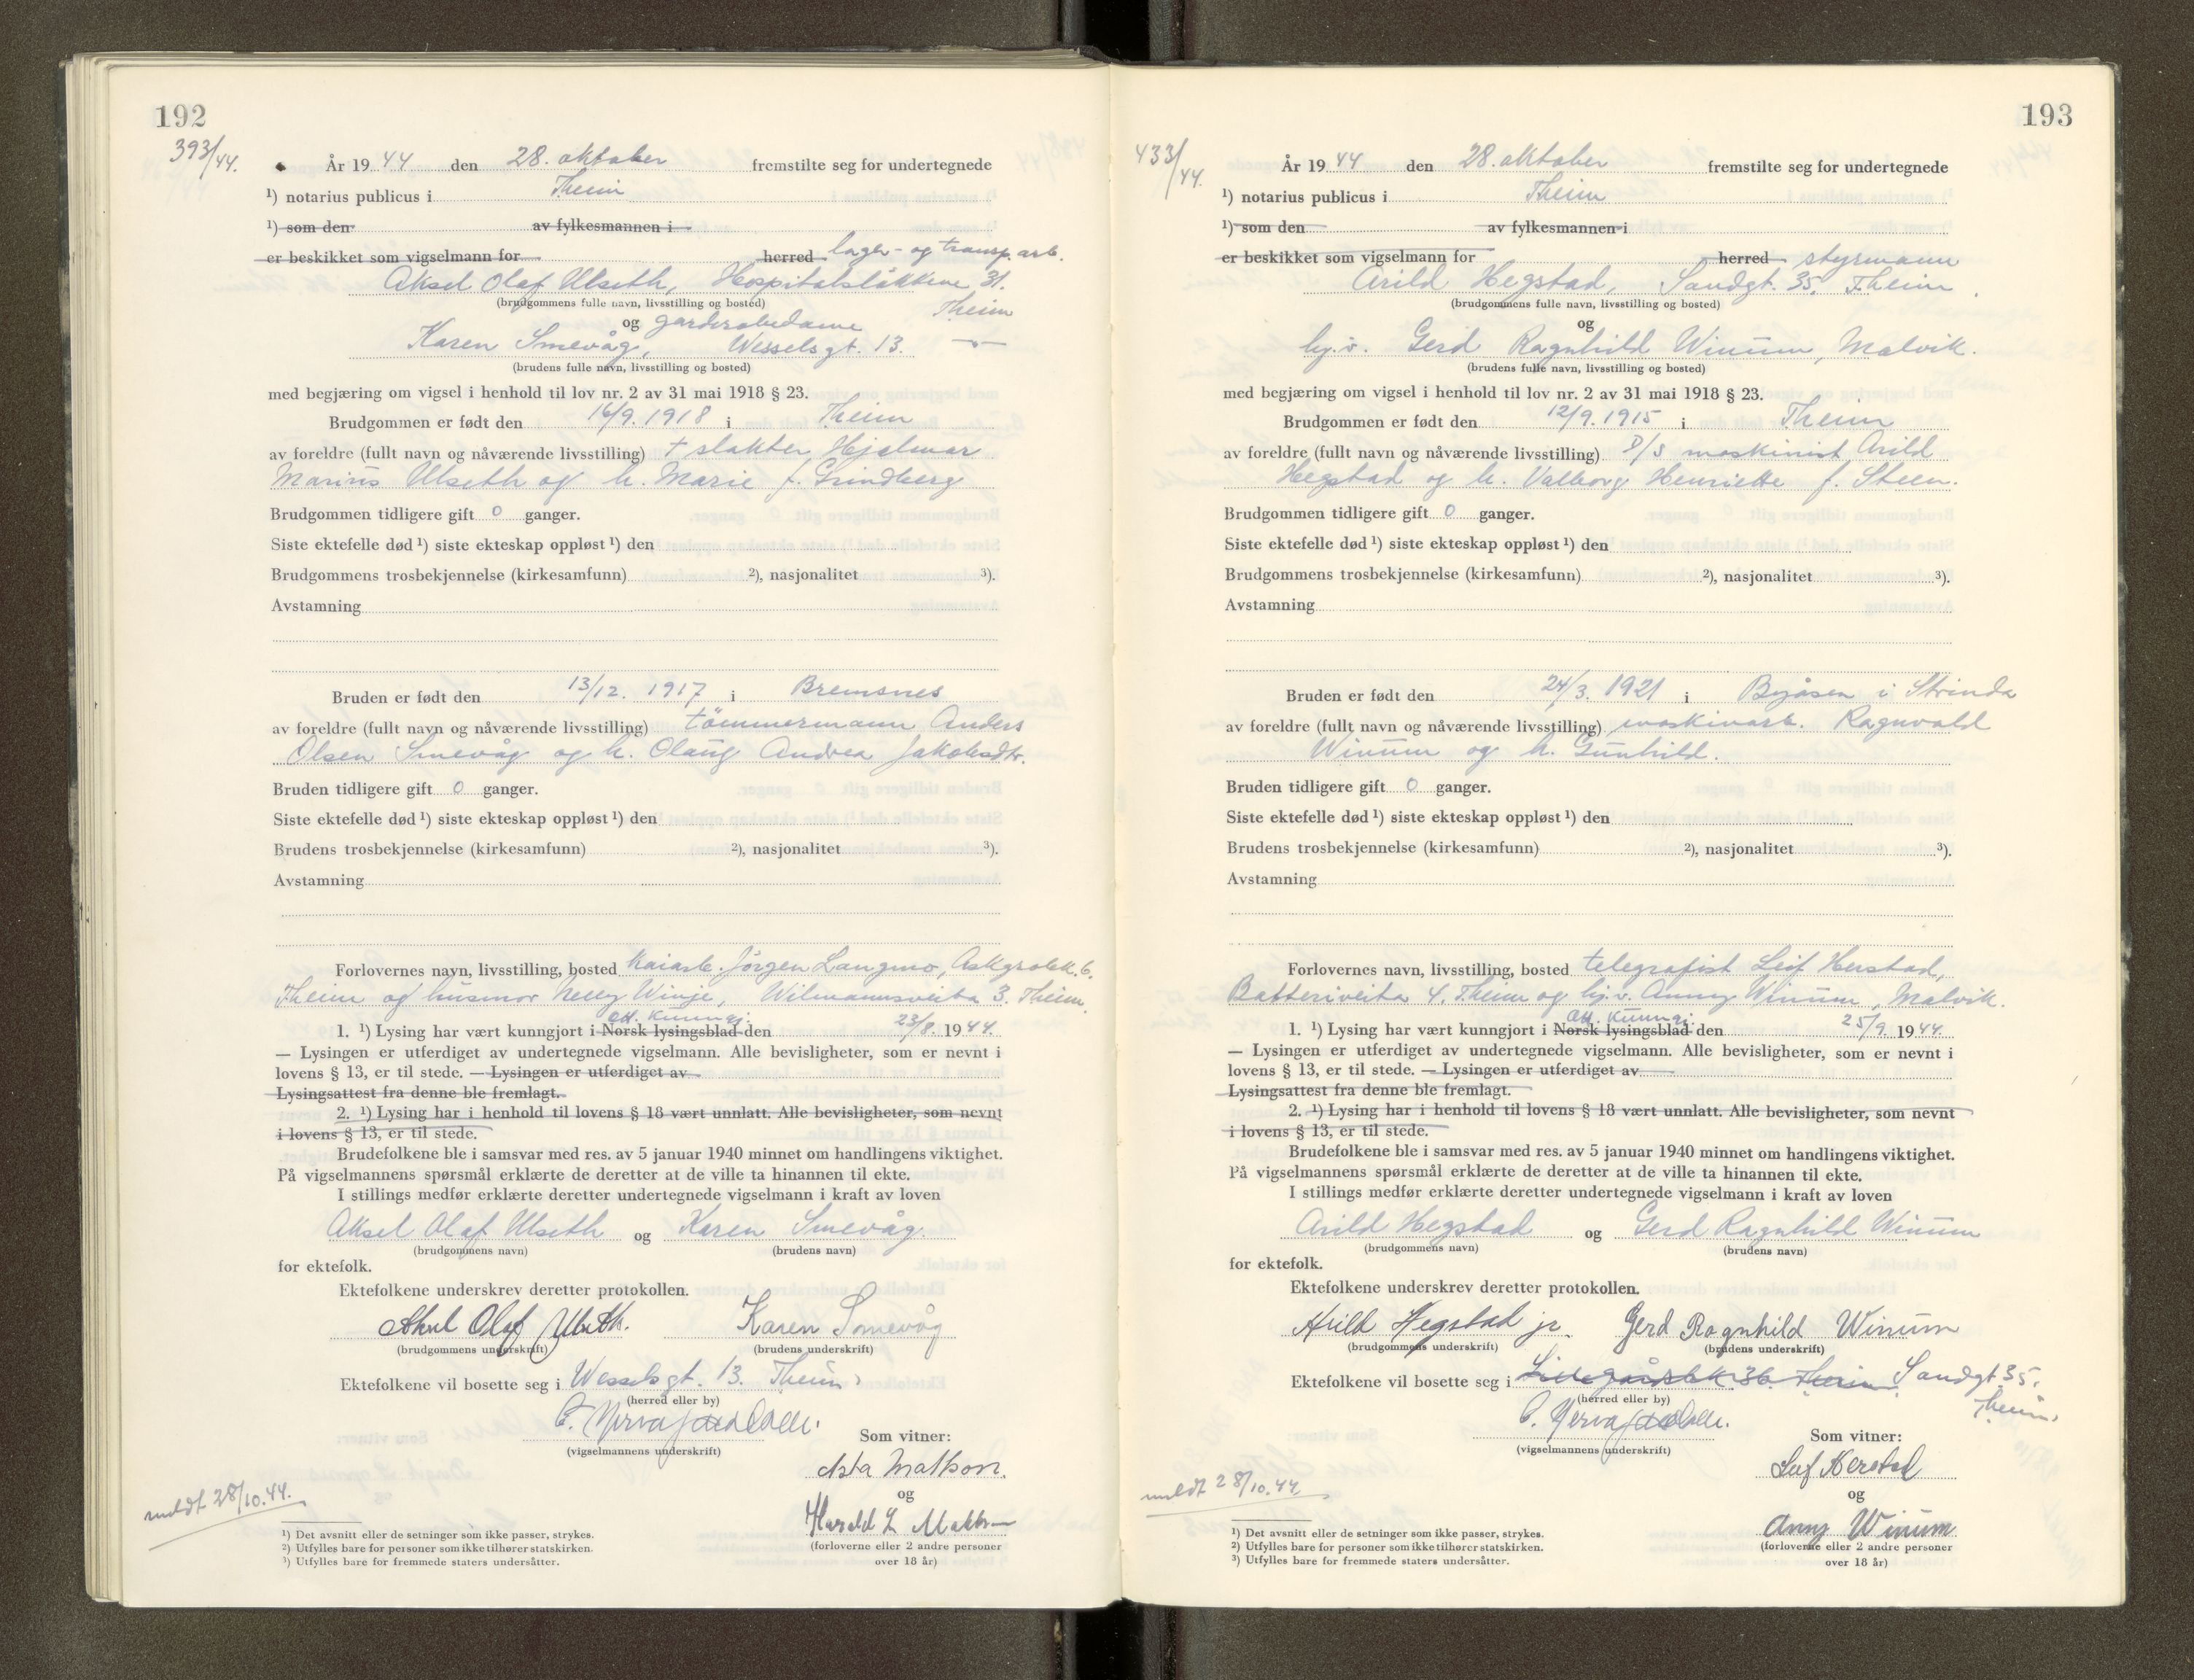 192
393/44.
År 1944 den 28. oktober fremstilte seg for undertegnede
¹) notarius publicus i Theim
¹) som den av fylkesmannen i
er beskikket som vigselmann for herred lager- og transp. arb.
Aksel Olaf Ulseth, Hospitalsløkkene 31.
(brudgommens fulle navn, livsstilling og bosted) Theim
og garderobedame
Karen Smevåg, Wesselsgt. 13. —"—
(brudens fulle navn, livsstilling og bosted)
med begjæring om vigsel i henhold til lov nr. 2 av 31 mai 1918 § 23.
Brudgommen er født den 16/9. 1918 i Theim
av foreldre (fullt navn og nåværende livsstilling) + slakter Hjalmar
Marius Ulseth og h. Marie f. Grindberg
Brudgommen tidligere gift 0 ganger.
Siste ektefelle død ¹) siste ekteskap oppløst ¹) den
Brudgommens trosbekjennelse (kirkesamfunn) ²), nasjonalitet ³).
Avstamning
Bruden er født den 13/12. 1917 i Bremsnes
av foreldre (fullt navn og nåværende livsstilling) tömmermann Anders
Olsen Smevåg og h. Olaug Andrea Jakobsdtr.
Bruden tidligere gift 0 ganger.
Siste ektefelle død ¹) siste ekteskap oppløst ¹) den
Brudens trosbekjennelse (kirkesamfunn) ²), nasjonalitet ³).
Avstamning
Forlovernes navn, livsstilling, bosted Kaiarb. Jörgen Langmo, 6,
Theim og husmor Nelly Winje, Wilmannsveita 3. Theim
off. kunngj.
1. ¹) Lysing har vært kunngjort i Norsk lysingsblad den 23/8. 1944.
— Lysingen er utferdiget av undertegnede vigselmann. Alle bevisligheter, som er nevnt i
lovens § 13, er til stede. — Lysingen er utferdiget av
Lysingsattest fra denne ble fremlagt.
2. ¹) Lysing har i henhold til lovens § 18 vært unnlatt. Alle bevisligheter, som nevnt
i lovens § 13, er til stede.
Brudefolkene ble i samsvar med res. av 5 januar 1940 minnet om handlingens viktighet.
På vigselmannens spørsmål erklærte de deretter at de ville ta hinannen til ekte.
I stillings medfør erklærte deretter undertegnede vigselmann i kraft av loven
Aksel Olaf Ulseth og Karen Smevåg.
(brudgommens navn) (brudens navn)
for ektefolk.
Ektefolkene underskrev deretter protokollen.
Aksel Olaf Ulseth. Karen Smevåg
(brudgommens underskrift) (brudens underskrift)
Ektefolkene vil bosette seg i Wesselsgt. 13. Theim.
(herred eller by)
(vigselmannens underskrift)
Som vitner:
Asta Mathson.
og
Harald L
(forloverne eller 2 andre personer
over 18 år)
meldt 28/10.44.
¹) Det avsnitt eller de setninger som ikke passer, strykes.
²) Utfylles bare for personer som ikke tilhører statskirken.
³) Utfylles bare for fremmede staters undersåtter.
193
433/44.
År 1944 den 28. oktober fremstilte seg for undertegnede
¹) notarius publicus i Theim
¹) som den av fylkesmannen i
er beskikket som vigselmann for herred styrmann
Arild Hegstad, Sandgt. 35. Theim.
(brudgommens fulle navn, livsstilling og bosted)
og
hj.v. Gerd Ragnhild Winum, Malvik.
(brudens fulle navn, livsstilling og bosted)
med begjæring om vigsel i henhold til lov nr. 2 av 31 mai 1918 § 23.
Brudgommen er født den 12/9. 1915 i Theim
av foreldre (fullt navn og nåværende livsstilling) D/S maskinist Arild
Hegstad og h. Valborg Henriette f. Steen.
Brudgommen tidligere gift 0 ganger.
Siste ektefelle død ¹) siste ekteskap oppløst ¹) den
Brudgommens trosbekjennelse (kirkesamfunn) ²), nasjonalitet ³).
Avstamning
Bruden er født den 24/3. 1921 i Byåsen i Strinda
av foreldre (fullt navn og nåværende livsstilling) maskinarb. Ragnvald
Winum og h. Gunhild.
Bruden tidligere gift 0 ganger.
Siste ektefelle død ¹) siste ekteskap oppløst ¹) den
Brudens trosbekjennelse (kirkesamfunn) ²), nasjonalitet ³).
Avstamning
Forlovernes navn, livsstilling, bosted telegrafist Leif Herstad,
Batteriveita 4. Theim og hj.v. Anny Winum, Malvik.
off. kunngj.
1. ¹) Lysing har vært kunngjort i Norsk lysingsblad den 25/9. 1944.
— Lysingen er utferdiget av undertegnede vigselmann. Alle bevisligheter, som er nevnt i
lovens § 13, er til stede. — Lysingen er utferdiget av
Lysingsattest fra denne ble fremlagt.
2. ¹) Lysing har i henhold til lovens § 18 vært unnlatt. Alle bevisligheter, som nevnt
i lovens § 13, er til stede.
Brudefolkene ble i samsvar med res. av 5 januar 1940 minnet om handlingens viktighet.
På vigselmannens spørsmål erklærte de deretter at de ville ta hinannen til ekte.
I stillings medfør erklærte deretter undertegnede vigselmann i kraft av loven
Arild Hegstad og Gerd Ragnhild Winum
(brudgommens navn) (brudens navn)
for ektefolk.
Ektefolkene underskrev deretter protokollen.
Arild Hegstad jr. Gerd Ragnhild Winum
(brudgommens underskrift) (brudens underskrift)
Ektefolkene vil bosette seg i 36. Theim Sandgt 35.
(herred eller by) Theim.
(vigselmannens underskrift)
Som vitner:
Leif Herstad
og
Anny Winum
(forloverne eller 2 andre personer
over 18 år)
meldt 28/10.44.
¹) Det avsnitt eller de setninger som ikke passer, strykes.
²) Utfylles bare for personer som ikke tilhører statskirken.
³) Utfylles bare for fremmede staters undersåtter.